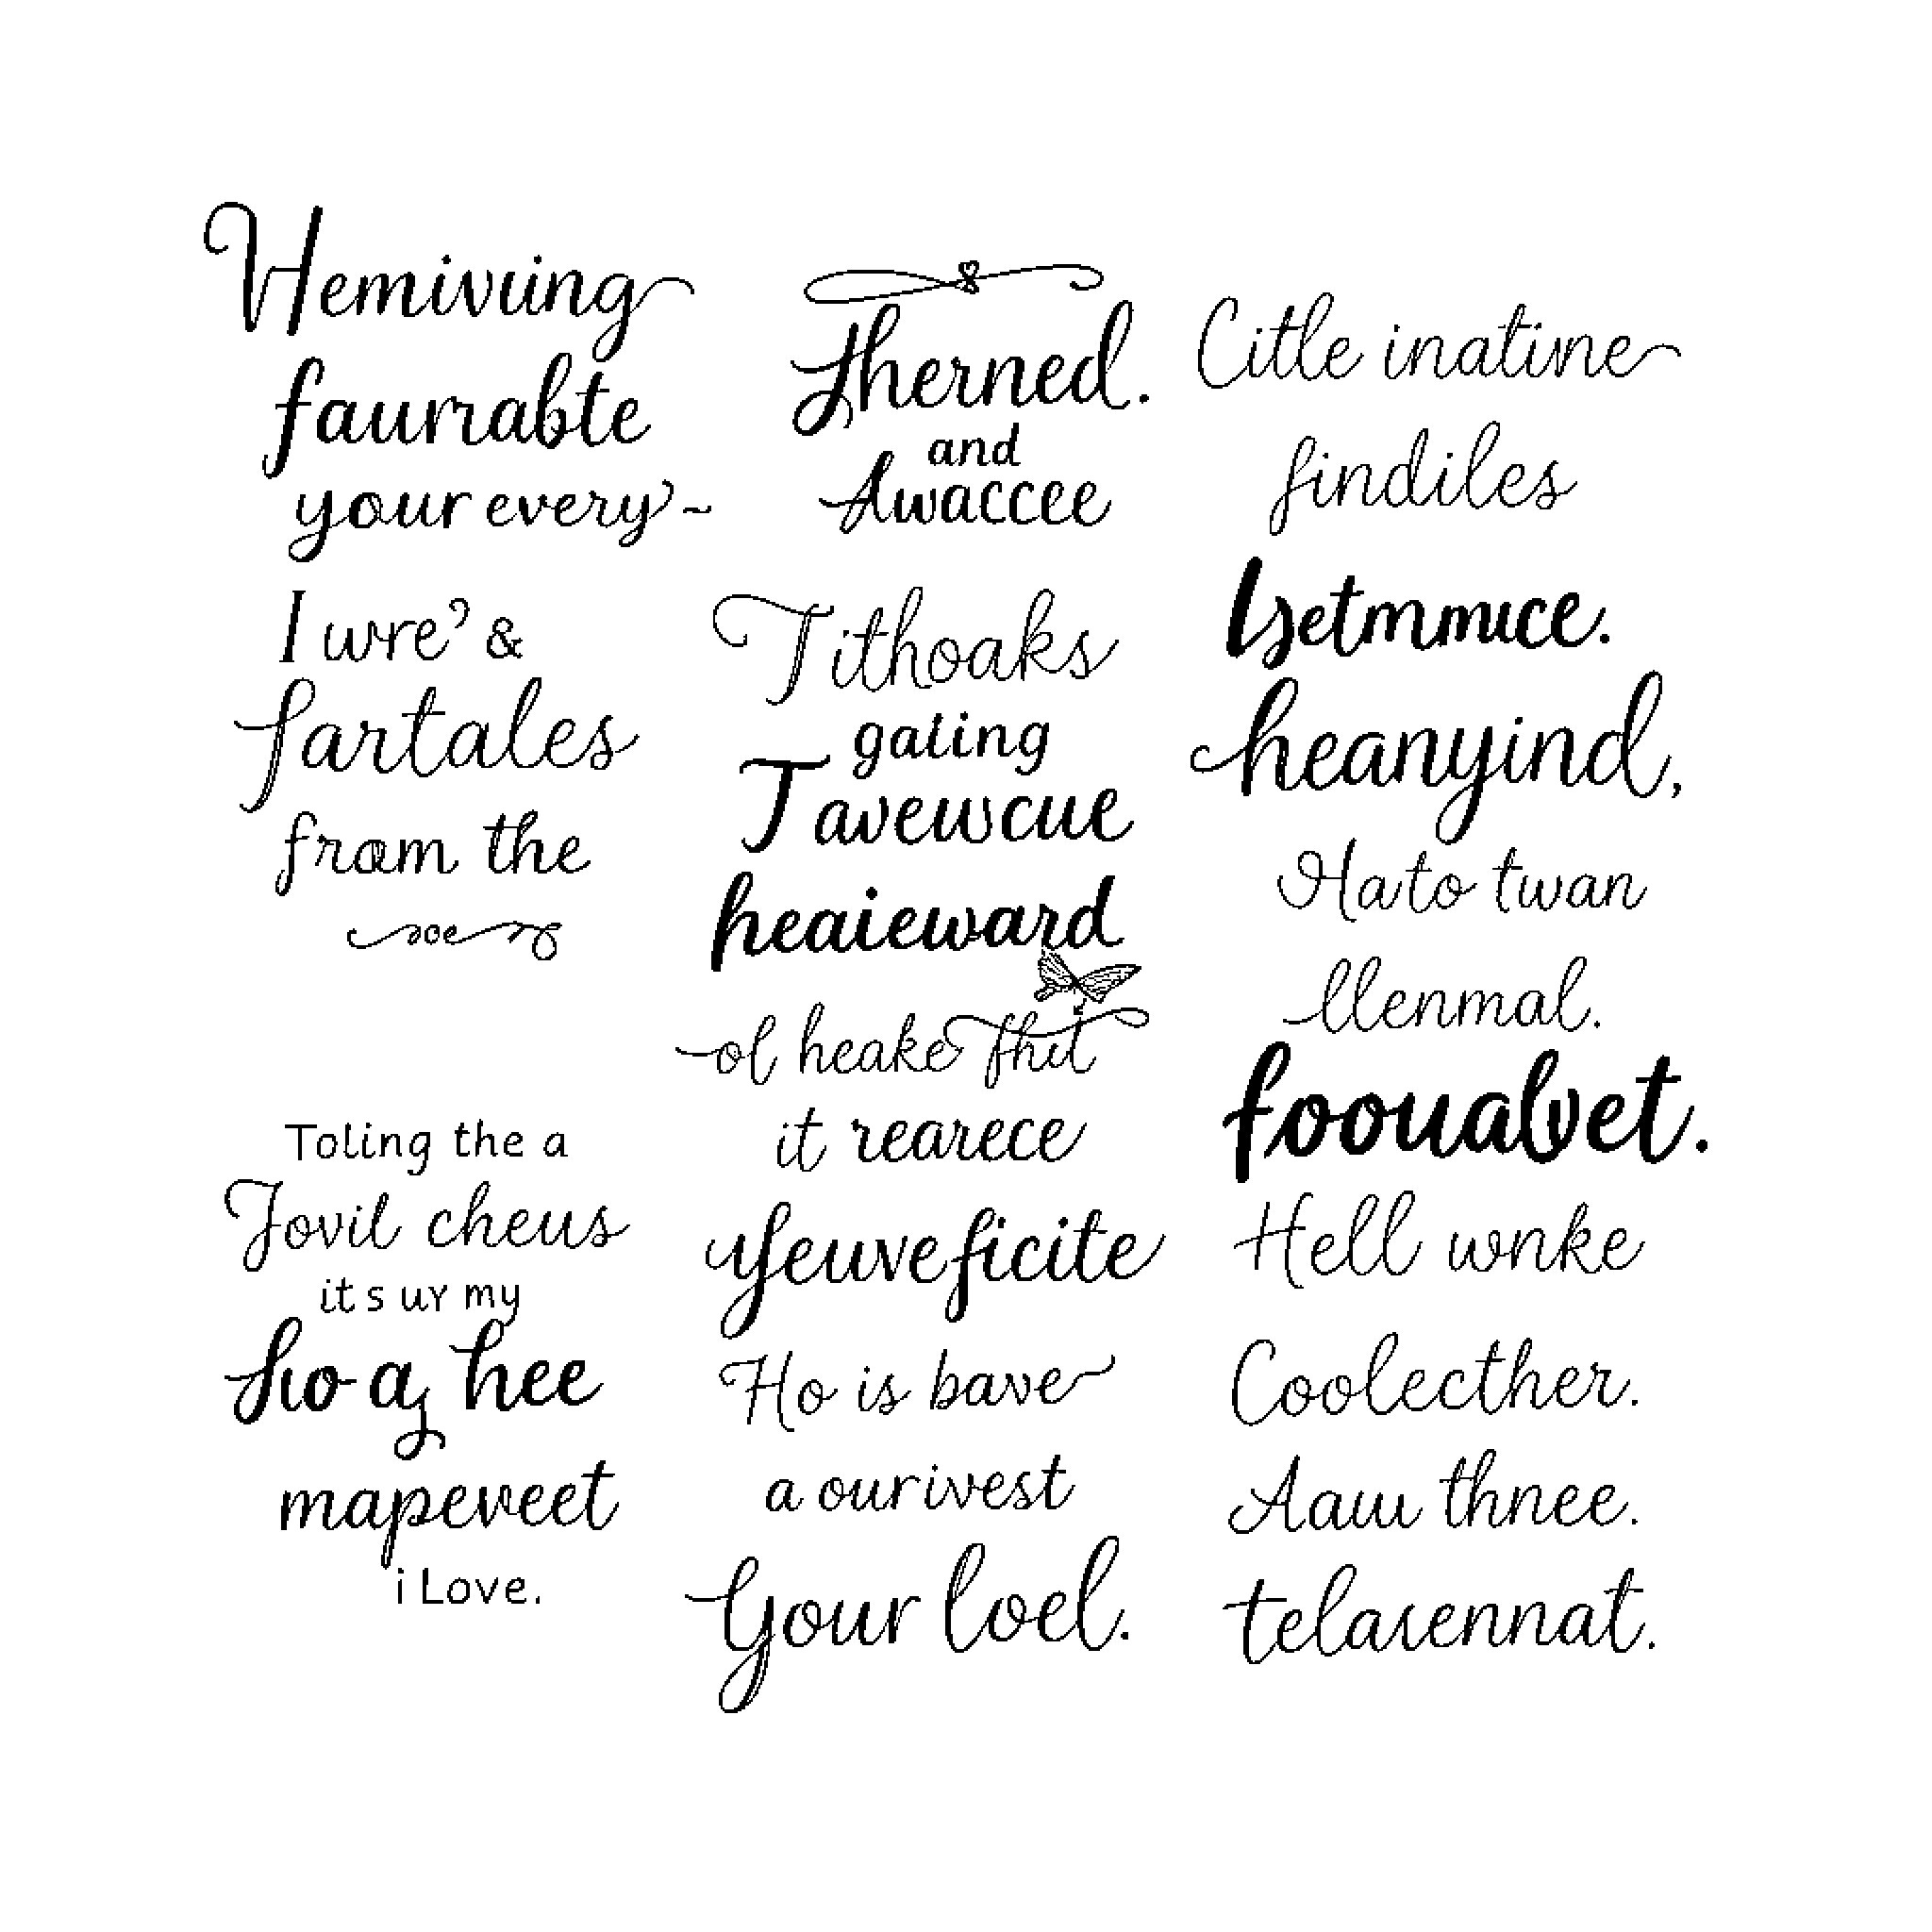 Hemivung
faurrabte
your every ~
I wre' &
fartales
from the
Toling the a
Jovil cheus
it s ur my
hee
mapeveet
i Love.
Therned.
and
Awaccee
Tithoaks
gating
Tavewcue
heaieward
ol heake fhit
it rearece
yeuveficite
Ho is bave
a ourivest
Your loel.
Citle inatine
findiles
heanyind,
Hato twan
llenmal.
fooualvet.
Hell wnke
Coolecther.
Aauu thnee.
telasennat.